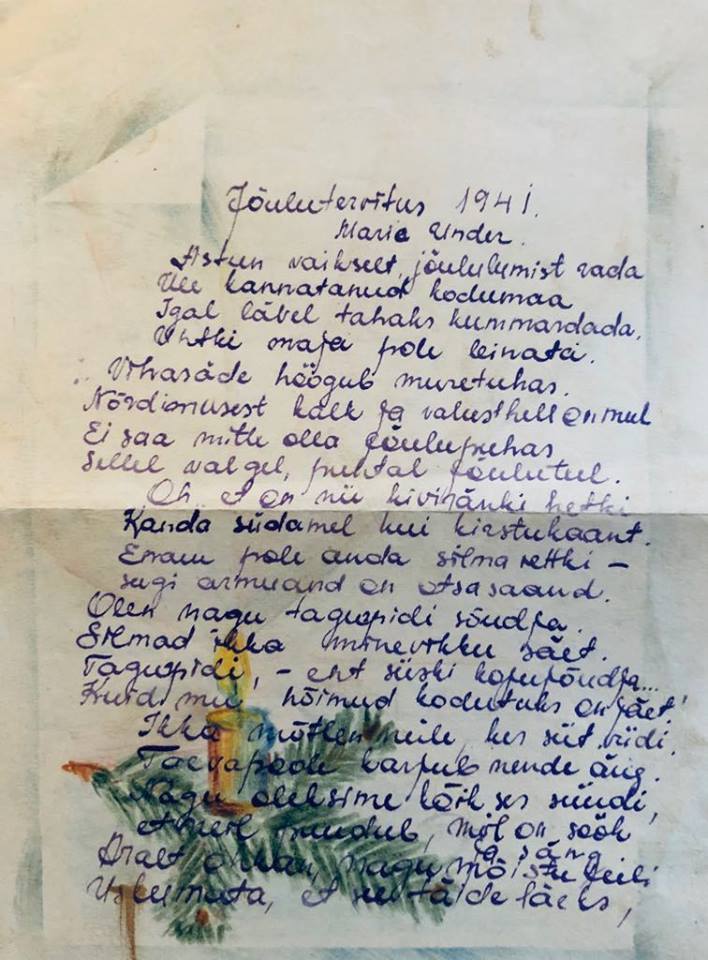 Jõulutervitus 1941.
Maria Under.
Astun vaikselt, jõululumist rada
Üle kannatanud kodumaa
Igal lävel tahaks kummardada,
Ühtki maja pole leinata.
Vihasäde hõõgub muretuhas.
Nördimusest kalk ja valusthell on mul
Ei saa mitte olla jõulupuhas
Sellel valgel, puhtal jõulutul.
Oh et on nii kiviränki hetki
Kanda südamel kui kirstukaant.
Enam pole anda silmavettki –
seegi armuand on otsasaand.
Olen nagu tagurpidi sõudja
Silmad ikka minevikku säet.
Tagurpidi, – ent siiski kojujõudja...
Kuid mu hõimud kodutuks on jäet!
Ikka mõtlen neile, kes siit viidi.
Taevapoole karjub nende äng.
Nagu oleksime kõik ses süüdi,
et neil puudub, mil on söök
ja säng
Aralt ohkan, nagu mõistu keeli
Uskumata, et see täide läeks,